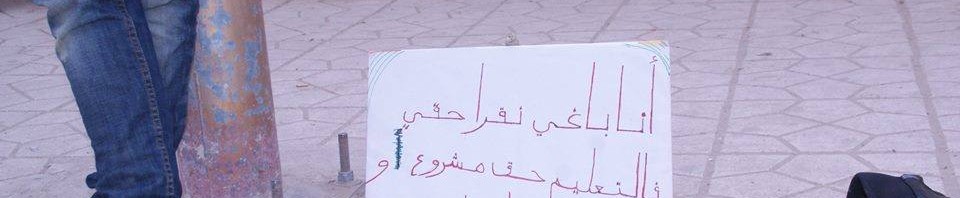 أنا باغي نقرا حقي
فالتعليم حق مشروع و